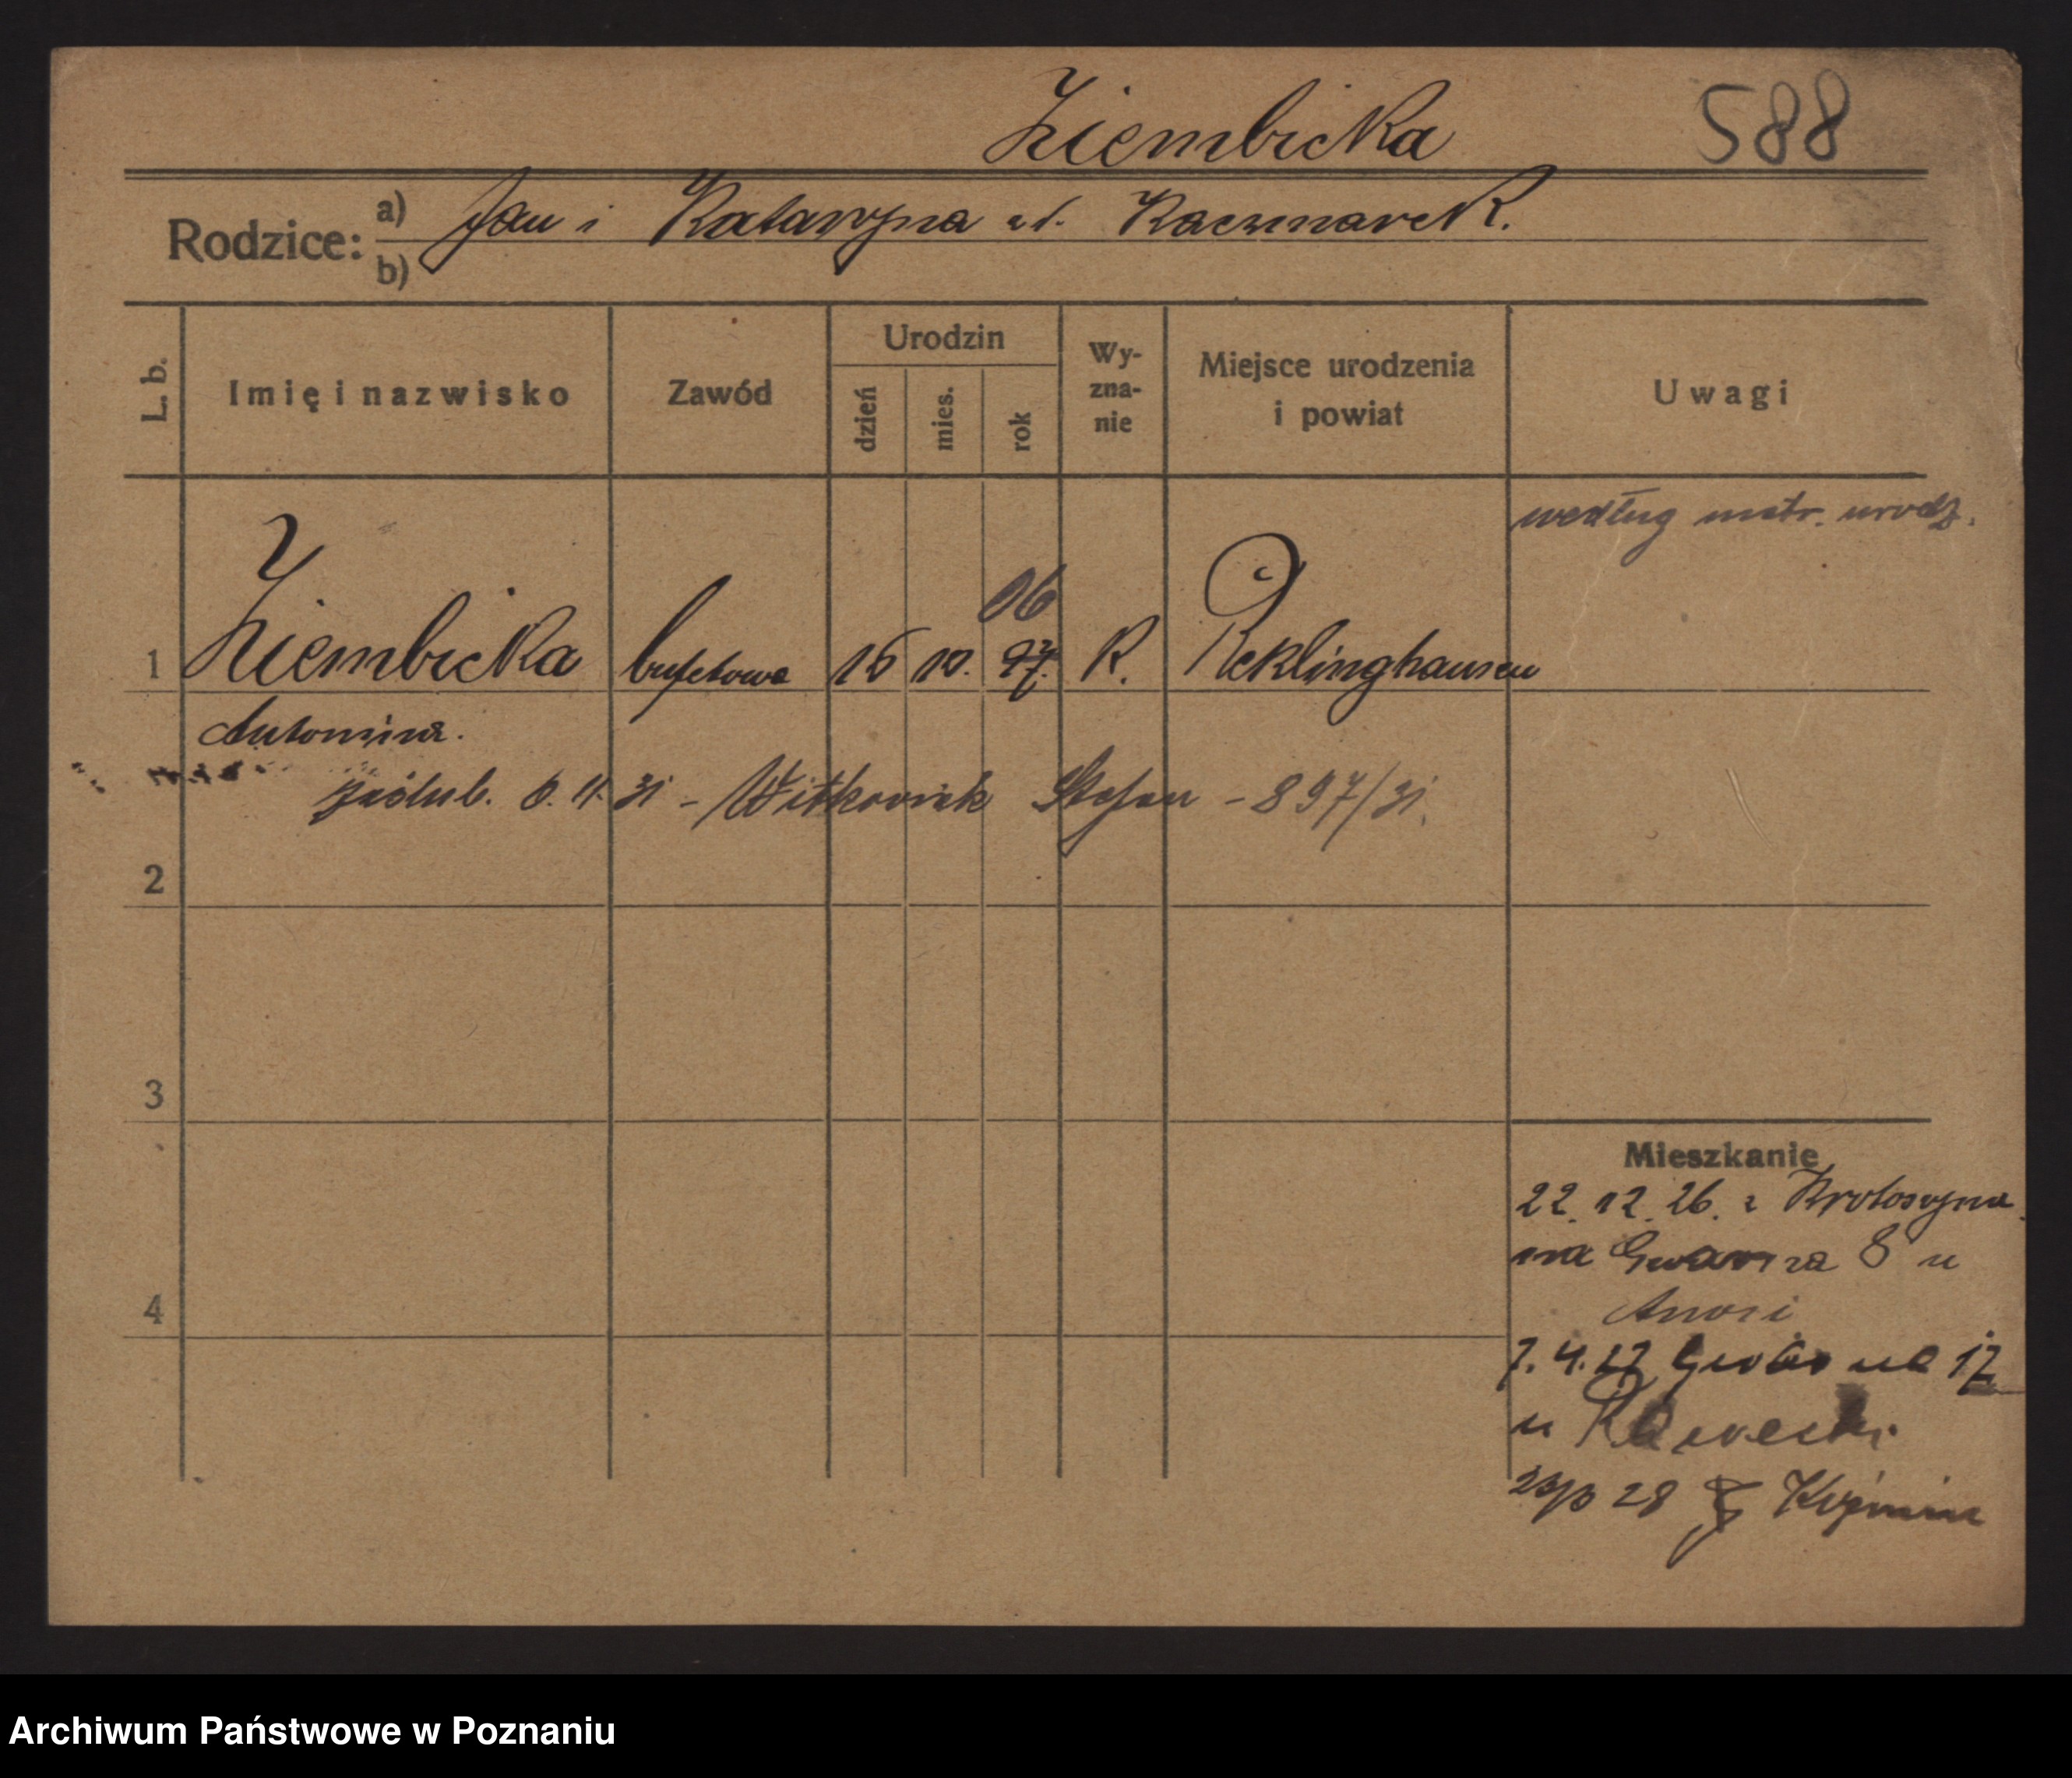 Ziembicka 588
Rodzice: a) Jan i Katarzyna ul. Kaczmarek.
b)
L. b. Imię i nazwisko Zawód Urodzin dzień mies. rok Wy-zna-nie Miejsce urodzenia i powiat Uwagi
według metr. urodz.
06
1 Ziembicka bufetowa 16 10. 07. R. Reklinghausen
Antonina.
zaślub. 6. 11. 31 - Witkowiak Stefan - 897/31.
2
3
Mieszkanie
22. 12. 26. z Krotoszyna
na Gwarna 8 u
4
7. 4. 27 17
u
28 Koźmin
Archiwum Państwowe w Poznaniu